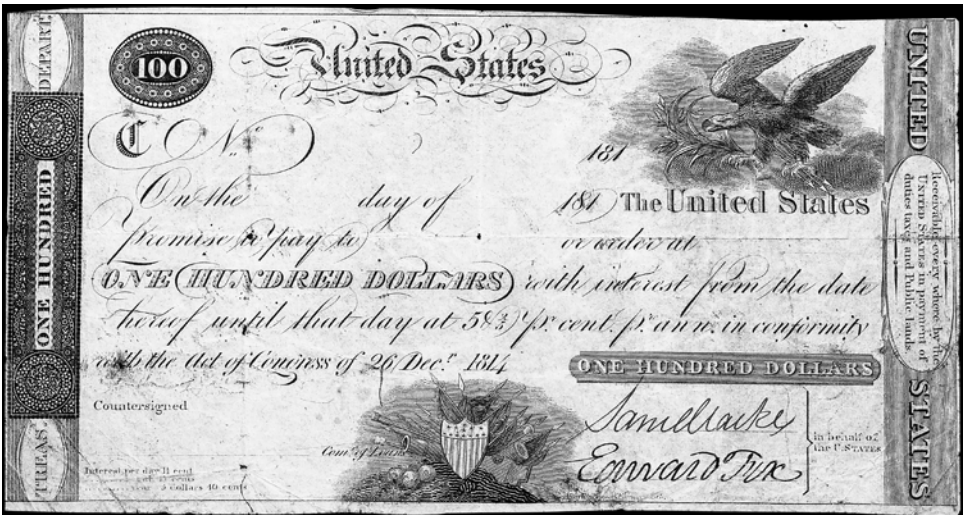 DEPART.
ONE HUNDRED
TREAS.
100
United States
C No
181
On the day of 181 The United States
promise to pay to or order at
ONE HUNDRED DOLLARS with interest from the date
thereof until that day at 5 2/5 pr. cent. pr. ann. in conformity
with the Act of Congress of 26 Decr. 1814
ONE HUNDRED DOLLARS
Countersigned
Comr. of Loans
Interest per day 1½ cent
dollars 40 cents
Edward Fox
In behalf of
the U.STATES
UNITED
Receivable every where by the
UNITED STATES in payment of
duties taxes and Public lands.
STATES